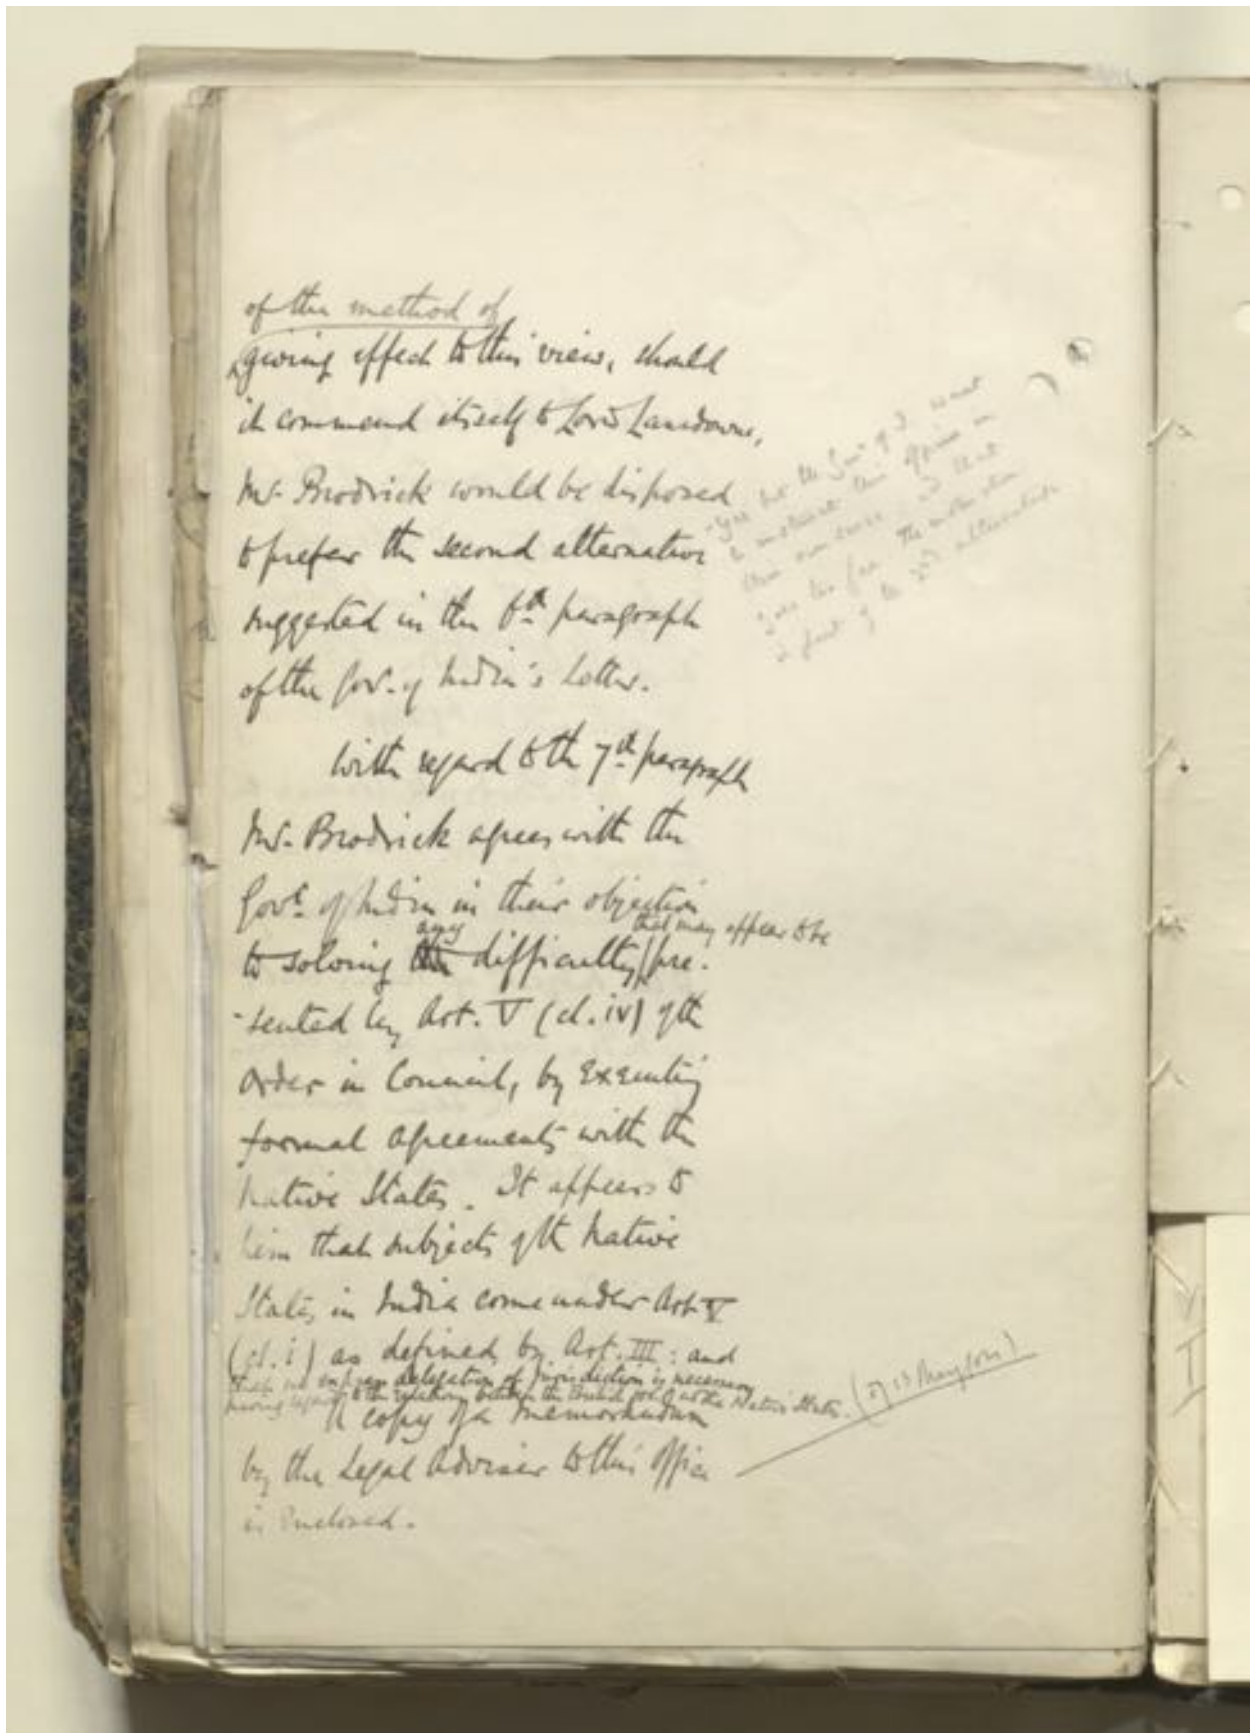 of the method of
giving effect to this view, should
it commend itself to Lord Lansdowne,
Mr. Brodrick would be disposed
to prefer the second alternative
suggested in the 6th paragraph
of the Gov. of India's letter.
With regard to the 7th paragraph
Mr. Brodrick agrees with the
Govt. of India in their objection
any that may appear to be
to solving the difficulty pre-
-sented by Art. V (cl. iv) of the
Order in Council, by executing
formal agreements with the
Native States. It appears to
him that subjects of the Native
States in India come under Art. V
(cl. i) as defined by Art. III: and
that no express delegation of jurisdiction is necessary
having regard to the relations between the British Govt. and the Native States.
A copy of a memorandum
by the Legal Adviser to this Office
is enclosed.
the Gov of I
this opinion in
of the 2nd alternative